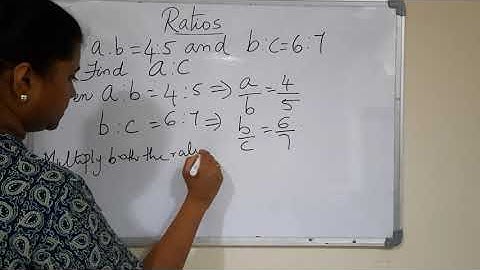 Ratios
a:b=4:5 and b:c=6:7
Find a:c
en a:b=4:5⇒ a/b=4/5
b:c=6:7⇒ b/c=6/7
Multiply both the